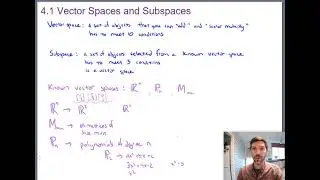 4.1 Vector Spaces and Subspaces
Vector space: a set of objects that you can "add" and "scalar multiply"
has to meet 10 conditions
Subspace: a set of objects selected from a known vector space
has to meet 3 conditions
is a vector space
Known vector spaces: ℝⁿ, Pₙ, Mₘₙ
ℝⁿ →
Mₘₙ → all matrices of
size m×n
Pₙ → polynomials of degree n
P₂ →